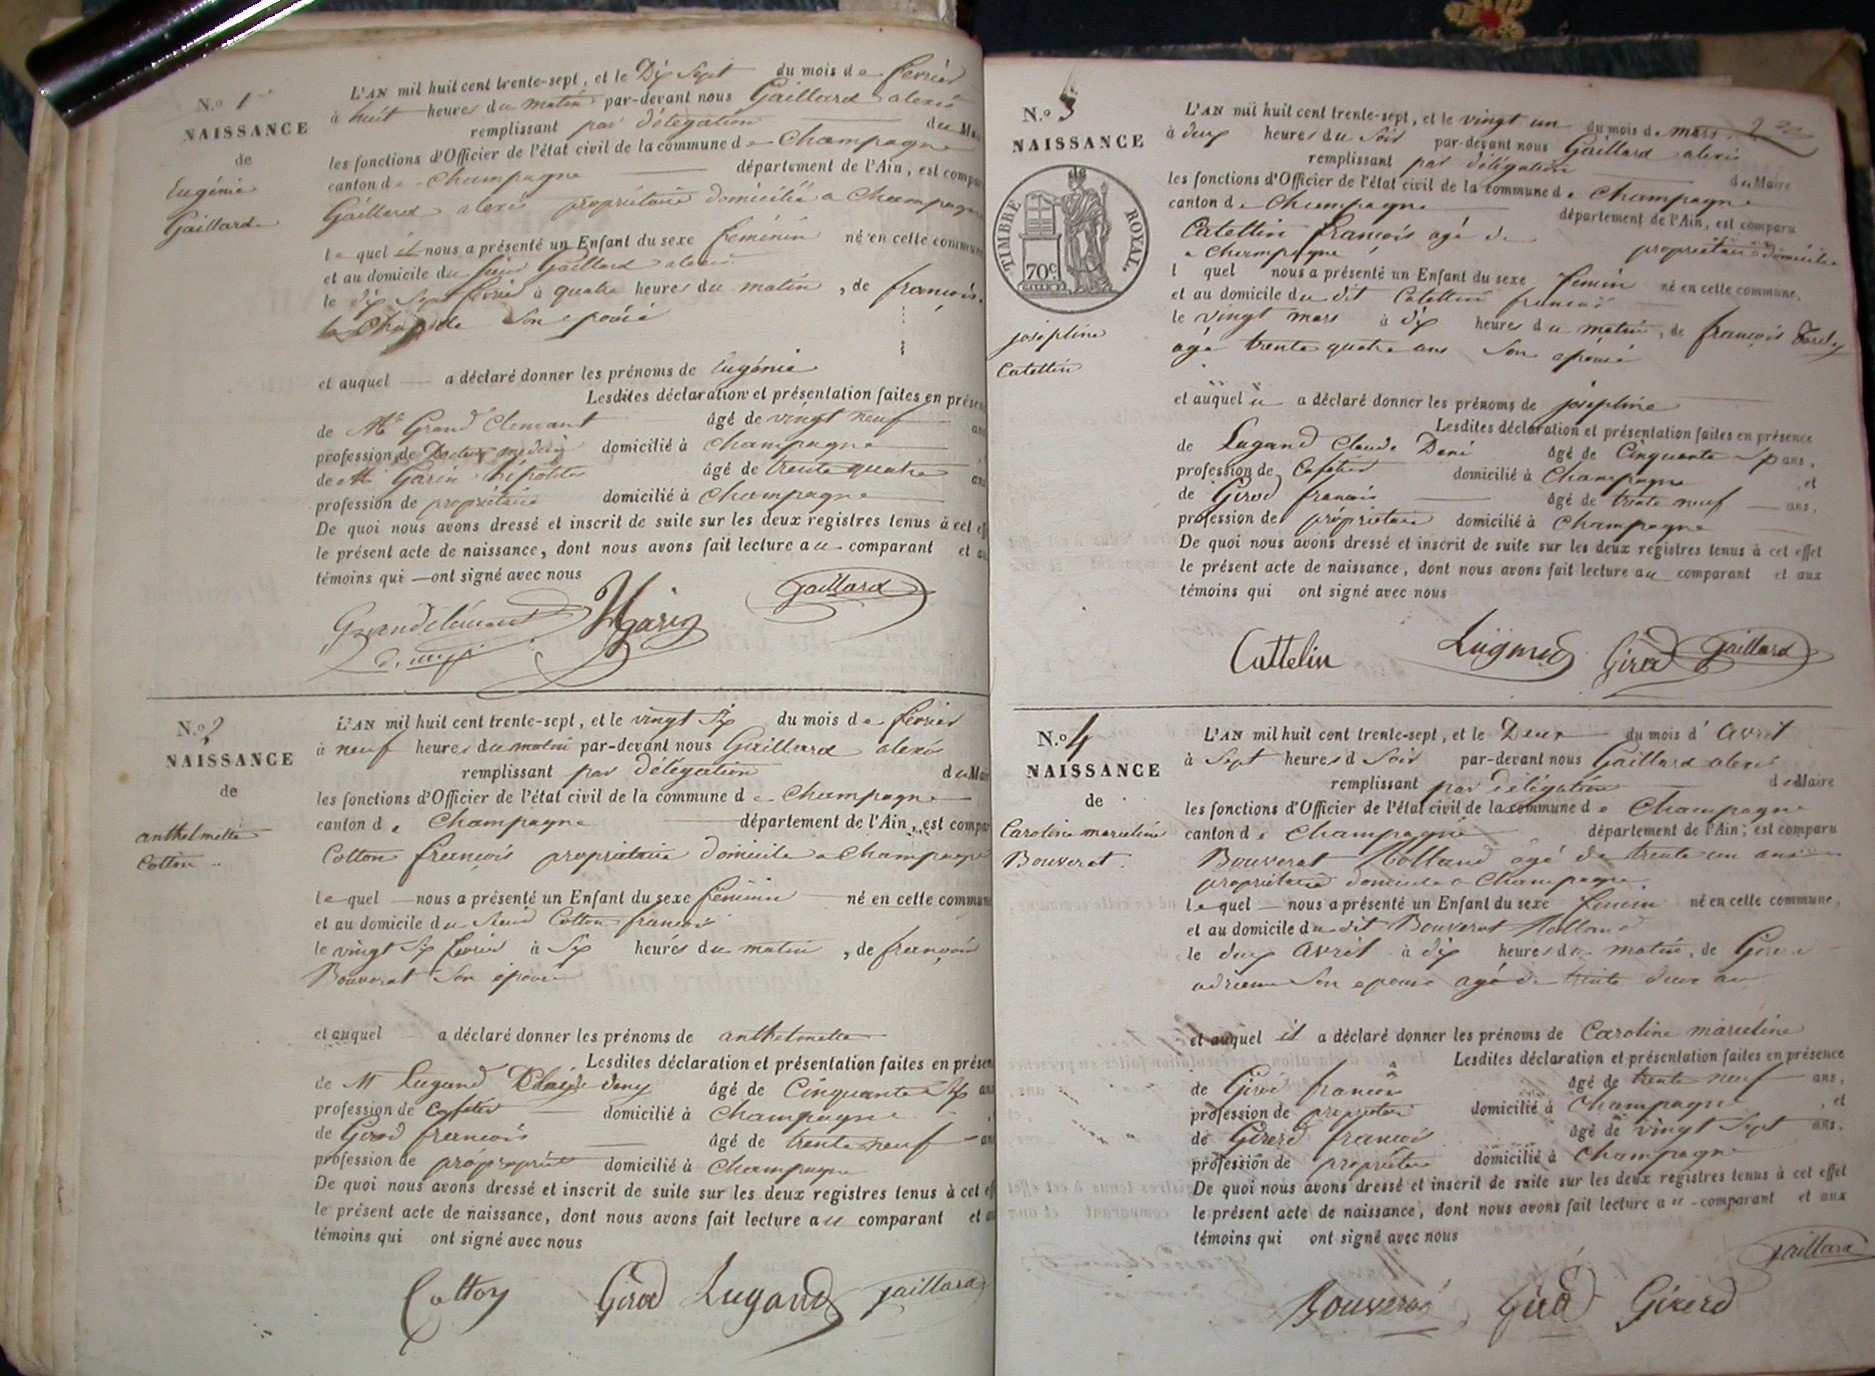 N.o 1
NAISSANCE
de
Eugénie
Gaillard
L'AN mil huit cent trente-sept, et le Dix Sept du mois de fevrier
à huit heures du matin par-devant nous Gaillard alexis
remplissant par délégation du Mai
les fonctions d'Officier de l'état civil de la commune de Champagne
canton de Champagne département de l'Ain, est compa
Gaillard alexis propriétaire domicilié a Champagne
lequel il nous a présenté un Enfant du sexe féminin né en cette commune
et au domicile du Gaillard alexis
le dix sept fevrier à quatre heures du matin, de francoise
son epouse
et auquel a déclaré donner les prénoms de Eugénie
Lesdites déclaration et présentation faites en présen
de Mr Grand Clement âgé de vingt neuf ans
profession de Docteur medecin domicilié à Champagne
de Mr Garin hipolite âgé de trente quatre ans
profession de propriétaire domicilié à Champagne
De quoi nous avons dressé et inscrit de suite sur les deux registres tenus à cet eff
le présent acte de naissance, dont nous avons fait lecture au comparant et au
témoins qui ont signé avec nous
Grandclément HGarin Gaillard
N.o 2
NAISSANCE
de
anthelmette
Cotton
L'AN mil huit cent trente-sept, et le vingt six du mois de fevrier
à neuf heures du matin par-devant nous Gaillard alexis
remplissant par délégation du Mai
les fonctions d'Officier de l'état civil de la commune de Champagne
canton de Champagne département de l'Ain, est compar
Cotton francois propriétaire domicile a Champagne
lequel nous a présenté un Enfant du sexe féminin né en cette commun
et au domicile du Cotton francois
le vingt six fevrier à six heures du matin, de francoise
Bouverat son épouse
et auquel a déclaré donner les prénoms de anthelmette
Lesdites déclaration et présentation faites en présen
de M Lugand Claude deny âgé de Cinquante six ans
profession de Cafetier domicilié à Champagne
de Girod francois âgé de trente neuf ans
profession de domicilié à Champagne
De quoi nous avons dressé et inscrit de suite sur les deux registres tenus à cet eff
le présent acte de naissance, dont nous avons fait lecture au comparant et au
témoins qui ont signé avec nous
Cotton Girod Lugand gaillard
N.o 3
NAISSANCE
TIMBRE ROYAL.
70c
josephine
Catettin
L'AN mil huit cent trente-sept, et le vingt un du mois de mars
à deux heures du soir par-devant nous Gaillard alexis
remplissant par délégation du Maire
les fonctions d'Officier de l'état civil de la commune de Champagne
canton de Champagne département de l'Ain, est comparu
Catettin francois agé de propriétaire domicilie
a champagne
l quel nous a présenté un Enfant du sexe feminin né en cette commune,
et au domicile du dit Catettin francois
le vingt mars à dix heures du matin, de françoise
agé trente quatre ans son épouse
et auquel il a déclaré donner les prénoms de josephine
Lesdites déclaration et présentation faites en présence
de Lugand Claude Deni âgé de Cinquante ans,
profession de Cafetier domicilié à Champagne, et
de Girod francois âgé de trente neuf ans,
profession de propriétaire domicilié à Champagne
De quoi nous avons dressé et inscrit de suite sur les deux registres tenus à cet effet
le présent acte de naissance, dont nous avons fait lecture au comparant et aux
témoins qui ont signé avec nous
Cattelin Lugand Girod Gaillard
N.o 4
NAISSANCE
de
Caroline marceline
Bouverat
L'AN mil huit cent trente-sept, et le Deux du mois d'avril
à Sept heures d Soir par-devant nous Gaillard alexis
remplissant par délégation du Maire
les fonctions d'Officier de l'état civil de la commune de Champagne
canton de Champagne département de l'Ain, est comparu
Bouverat âgé de trente un ans
propriétaire domicile a Champagne
lequel nous a présenté un Enfant du sexe feminin né en cette commune,
et au domicile du dit Bouverat
le deux avril à dix heures du matin, de
adrienne son epouse agé de trente deux an
et auquel il a déclaré donner les prénoms de Caroline marceline
Lesdites déclaration et présentation faites en présence
de Girod francois âgé de trente neuf ans,
profession de propriétaire domicilié à Champagne, et
de Girerd francois âgé de vingt sept ans,
profession de propriétaire domicilié à Champagne
De quoi nous avons dressé et inscrit de suite sur les deux registres tenus à cet effet
le présent acte de naissance, dont nous avons fait lecture au comparant et aux
témoins qui ont signé avec nous
gaillard
Bouverat Girod Girerd